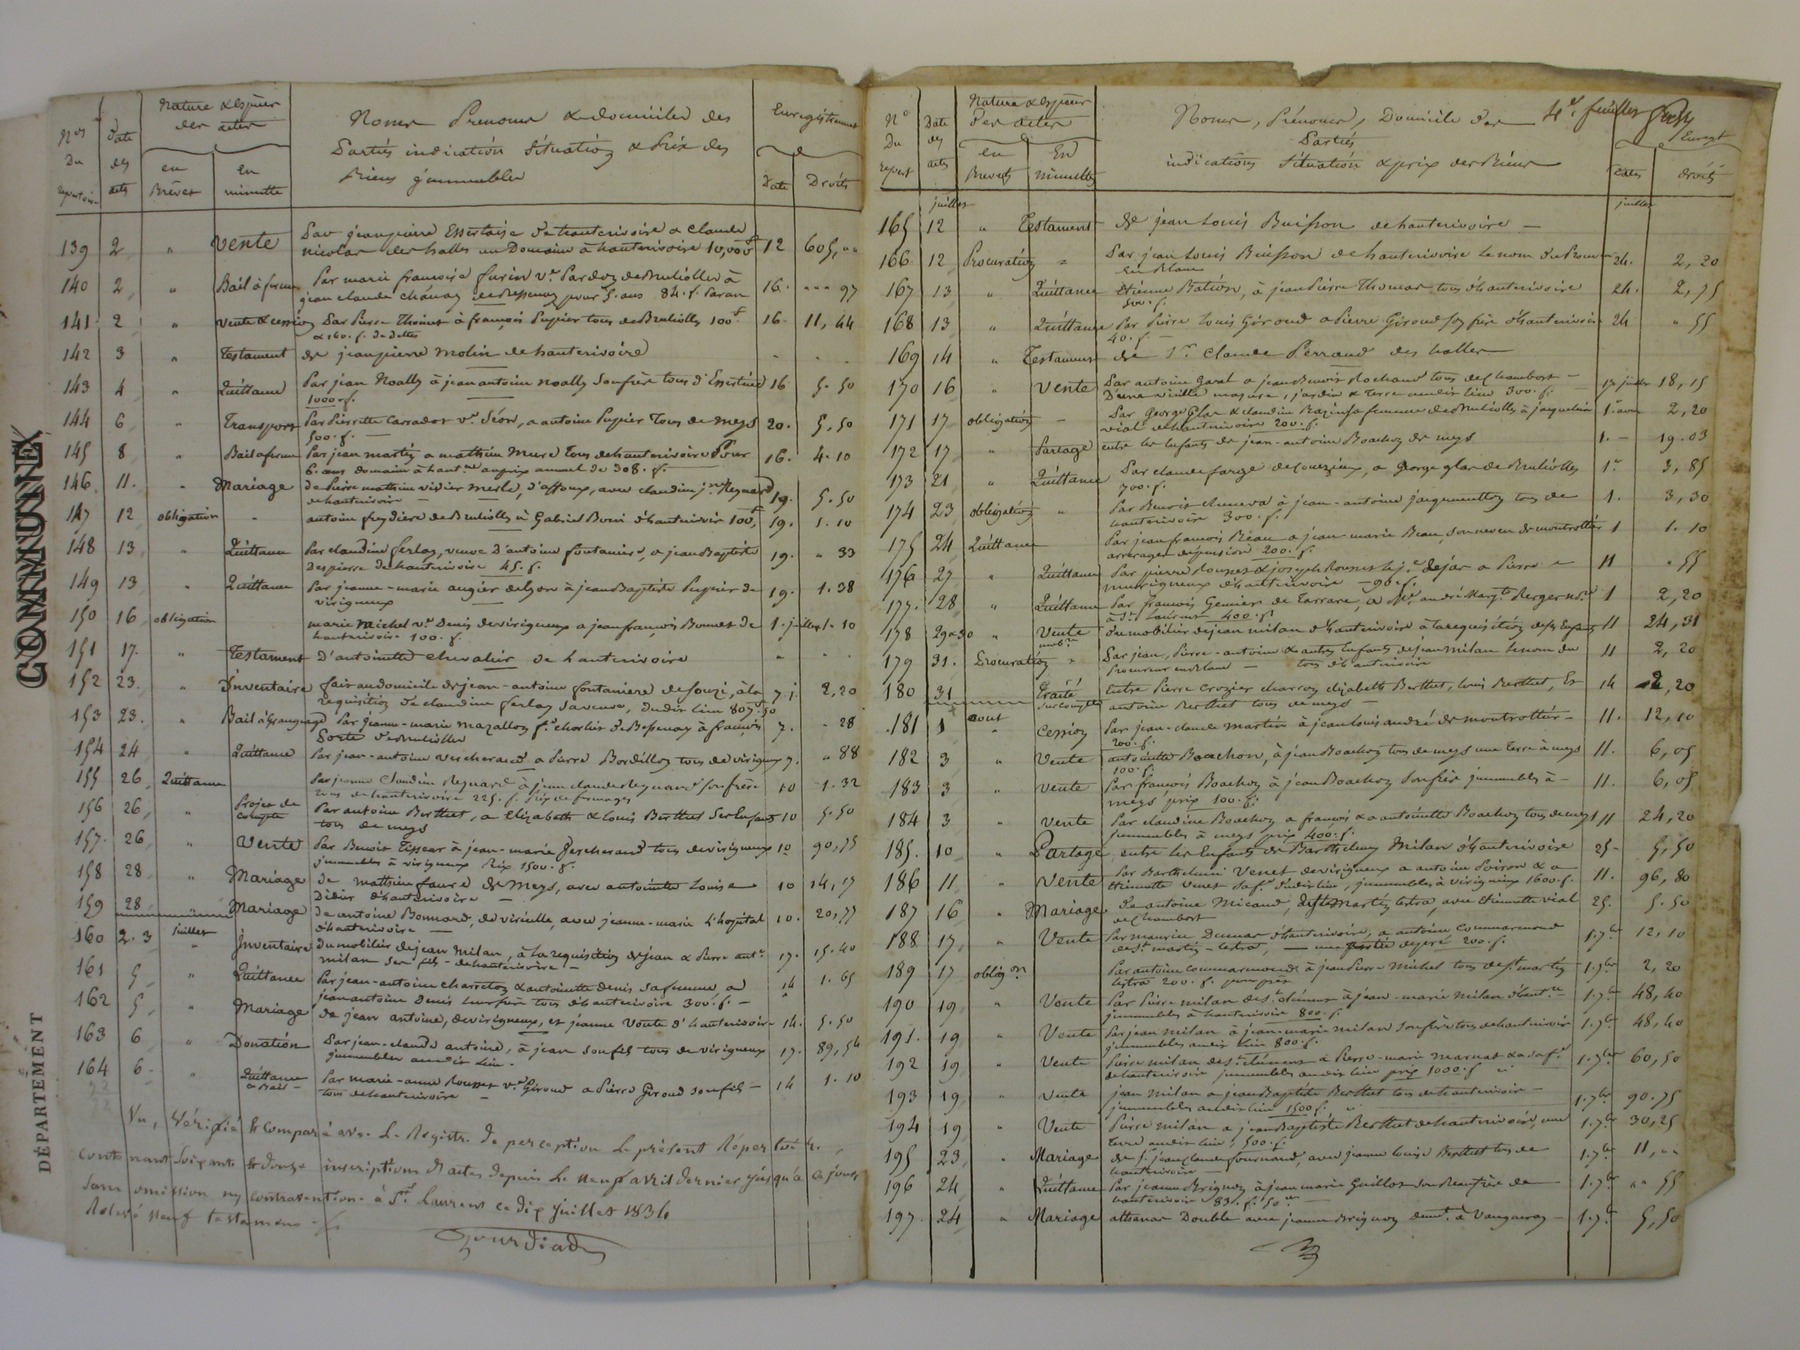 COMMUNE
DÉPARTEMENT
Nos Du repertoire
Date des actes
Nature & espèces des actes
en Brevet
en minutte
Noms Prenoms & domiciles des
Partiés indication Situation & Prix des
Biens jmmeubles
Enregistrement
Date
Droits
139 2 " Vente Par jean pierre d'hauterivoire a Claude
nicolas des halles un Domaine à hauterivoire 10,000 f 12 605, ""
140 2 " Bail à ferme Par marie françoise ve Pardon de Bruliolles à
jean claude de Bessenay pour 5. ans 84. f. Par an 16. " " " 97
141 2 " Vente & cession Par Pierre Thoinet à françois Pupier tous de Brulliolles 100 f
& 160. f. de dettes 16. 11, 44
142 3 " Testament de jean pierre Molin de hauterivoire
143 4 " Quittance Par jean Noally à jean antoine noally son frère tous d'
1000. f. 16 5. 50
144 6 " Transport Par Pierrette Carrador ve Séon, a antoine Pupier tous de meys
500. f. 20. 5, 50
145 8 " Bail a ferme Par jean martin a mathieu Mure tous de hauterivoire Pour
6. ans domaine à haut.re au prix annuel de 308. f. 16. 4. 10
146 11. " Mariage de Pierre mathieu vivier merle, d'affoux, avec claudine j.ne Reynard
de hauterivoire 19. 5. 50
147 12 obligation " antoine freydière de Brulliolles à Gabriel d'hauterivoire 100 f 19. 1. 10
148 13 " Quittance Par claudine ferlay, veuve d'antoine fontanière, a jean Baptiste
Despierre de hauterivoire 45. f. 19. " 33
149 13 " Quittance Par jeanne-marie augier de Lyon à jean Baptiste Pupier de
virigneux 19. 1. 38
150 16 obligation marie Michel ve Denis de virigneux a jean françois de
hauterivoire 100. f. 1. juillet 1. 10
151 17. " Testament d'antoinette Chevalier de hauterivoire
152 23. " Inventaire fait au domicile de jean-antoine fontaniere de Souzi, à la
requisition de claudine ferlay sa veuve, dudit lieu 807 f 50 7. j. 2, 20
153 23. " Bail à Grangeage Par jeanne-marie Mazallon fe de Bessenay à françois
de Brulliolles 7. " 28
154 24 " Quittance Par jean-antoine Vercherand a Pierre Bordillon tous de virigneux 7. " 88
155 26 Quittance Par jeanne Claudine Reynard à jean claude Reynard son frère
tous de hauterivoire 225. f. prix de fromages 10 1. 32
156 26 " Projet de compte Par antoine Berthet, a Elizabeth & Louis Berthet ses Enfants
tous de meys 10 5. 50
157. 26 " Vente Par Benoit Tisseur à jean-marie Vercherand tous de virigneux
jmmeubles à virigneux Prix 1500. f. 10 90, 75
158 28 " Mariage de mathieu faure de Meys, avec antoinette Louise
Didier d'hauterivoire 10 14, 17
159 28 " Mariage de antoine Bonnard, de viricelle, avec jeanne-marie L'hopital
d'hauterivoire 10. 20, 77
juillet
160 2. 3 " Jnventaire du mobilier de jean Milan, à la requisition de jean & Pierre ant.e
milan ses fils de hauterivoire 17. 15. 40
161 5 " Quittance Par jean-antoine charreton & antoinette Denis sa femme a
jean antoine Denis leur frère tous d'hauterivoire 300. f. 14 1. 65
162 5, " Mariage de jean antoine, de virigneux, et jeanne Voute d'hauterivoire 14. 5. 50
163 6 " Donation Par jean-claude antoine, à jean son fils tous de virigneux
jmmeubles audit lieu 17. 89, 54
164 6 " Quittance a Bail Par marie-anne Rousset ve Giroud a Pierre Giroud son fils
tous de hauterivoire 14 1. 10
Vu, Vérifié & comparé avec le Registre de perception le présent Répertoire,
contenant soixante & douze inscriptions d'actes depuis le neuf avril dernier jusqu'à ce jour
sans omission ny contravention à St Laurent ce dix juillet 1834
Relevé neuf testamens
Jourdiad
No Du repert
Date des actes
Nature & espèces des actes
en Brevet
En minutte
Noms, Prénoms, Domicile des
Partiés
indications Situation & prix des Biens
4e feuillet
Enregt
Dates
droits
juillet
juillet
165 12 " Testament de jean Louis Buisson de hauterivoire
166 12 Procuration " Par jean Louis Buisson de hauterivoire le nom du Procureur
en Blanc 24. 2, 20
167 13 " Quittance Etienne Ration, à jean Pierre Thomas tous d'hauterivoire
500. f. 24. 2, 75
168 13 " Quittance Par Pierre Louis Giroud a Pierre Giroud son frère d'hauterivoire
40. f. 24 " 55
169 14 " Testament de Sr Claude Perraud des halles
170 16 " Vente Par antoine Garel a jean Benoit Rochand tous de Chambost
D'une vieille masure, jardin & Terre audit lieu 300. f. 17 juillet 18, 15
171 17 obligation Par George Glas & claudine sa femme de Brulliolles à jacqueline
vial d'hauterivoire 200. f. 1er aout 2, 20
172 17 " Partage entre les Enfants de jean-antoine Boachon de meys 1. 19. 03
173 21 " Quittance Par claude farge de Courzieux, a George glas de Brulliolles
700. f. 1er 3, 85
174 23 obligation " Par Benoit à jean-antoine jacquemetton tous de
hauterivoire 300. f. 1. 3, 30
175 24 Quittance Par jean françois Réau a jean-marie Reau, son neveu de montrottier
arrérages de pension 200. f. 1 1. 10
176 27 " Quittance Par pierre Rousset & joseph Rousset le je dejas a Pierre
murigneux d'hauterivoire 96. f. 11 " 55
177. 28 " Quittance Par françois Gemier de Tarrare, a Mr andré Marg.te Berger n.re
à St Laurent 400. f. 1 2, 20
178 29 & 30 " Vente mob.re du mobilier de jean milan d'hauterivoire à la requisition de ses Enfants 11 24, 31
179 31. Procuration " Par jean, Pierre-antoine & autres Enfants de jean Milan le nom du
Procureur en blanc tous d'hauterivoire 11 2, 20
180 31 Traité sur compte Entre Pierre Crozier charron elizabeth Berthet, Louis Berthet, Et
antoine Berthet tous de meys 14 2, 20
aout
181 1 " Cession Par jean-claude Martin à jean Louis andré de montrottier
200. f. 11. 12, 10
182 3 " Vente antoinette Boachon, à jean Boachon tous de meys une terre à meys
100. f. 11. 6, 05
183 3 " Vente Par françois Boachon à jean Boachon son frère jmmeubles à
meys prix 100. f. 11. 6, 05
184 3 " Vente Par claudine Boachon, a françois & a antoinette Boachon tous de meys
jmmeubles à meys prix 400. f. 11 24, 20
185. 10 " Partage entre les Enfants de Barthelemy Milan d'hauterivoire 25 5, 50
186 11 " Vente Par Barthelemi Venet de virigneux a antoine Poiron & a
Etiennette Venet sa fe dudit lieu, jmmeubles à virigneux 1600. f. 11. 96, 80
187 16 " Mariage de antoine Micaud, de St Martin lestra, avec Etiennette vial
de Chambost 25. 5. 50
188 17 " Vente Par maurice Dumas d'hauterivoire, a antoine Commarmond
de St martin-lestra, une de pré 200. f. 1. 7bre 12, 10
189 17 oblig.on Par antoine Commarmond à jean Pierre Michel tous de St martin
lestra 200. f. 1. 7bre 2, 20
190 19 " Vente Par Pierre milan de St Clément à jean-marie milan d'haut.re
jmmeubles à hauterivoire 800. f. 1. 7bre 48, 40
191. 19 " Vente Par jean Milan à jean-marie milan son frère tous de hauterivoire
jmmeubles audit lieu 800. f. 1. 7bre 48, 40
192 19 " Vente Pierre milan de St Clément a Pierre-marie marnat & a sa fe
de hauterivoire jmmeubles audit lieu prix 1000. f. 1. 7bre 60, 50
193 19 " Vente jean Milan a jean Baptiste Berthet tous de hauterivoire
jmmeubles audit lieu 1500 f. 1. 7bre 90. 75
194 19 " Vente Pierre milan a jean Baptiste Berthet de hauterivoire, une
terre audit lieu, 500. f. 1. 7bre 30, 25
195 23 " Mariage de jean claude fournand, avec jeanne Louise Berthet tous de
hauterivoire 1. 7bre 11, ""
196 24 " Quittance Par jeanne Brignon à jean marie Guillot son Beaufrère de
hauterivoire 83. f. 50 c 1. 7bre "" 55
197. 24 " Mariage athanas Double avec jeanne Brignon demt à Vaugneray 1. 7bre 5, 50